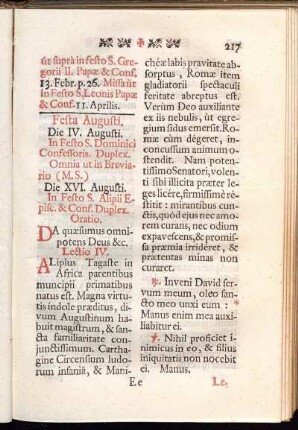 217
ut suprà in festo S. Gre-
gorii II. Papæ & Conf.
13. Febr. p. 26. Missa ut
in Festo S. Leonis Papæ
& Conf. 11. Aprilis.
Festa Augusti.
Die IV. Augusti.
In Festo S. Dominici
Confessoris. Duplex.
Omnia ut in Brevia-
rio (M.S.)
Die XVI. Augusti.
In Festo S. Alipii E-
pisc. & Conf. Duplex.
Oratio.
DA quæsumus omni-
potens Deus &c.
Lectio IV.
ALipius Tagaste in
Africa parentibus
municipii primatibus
natus est. Magna virtu-
tis indole præditus, di-
vum Augustinum ha-
buit magistrum, & san-
cta familiaritate con-
junctissimum. Cartha-
gine Circensium ludo-
rum insania, & Mani-
chæe labis pravitate ab-
sorptus, Romæ item
gladiatorii spectaculi
feritate abreptus est.
Verùm Deo auxiliante
ex iis nebulis, ut egre-
gium sidus emersit. Ro-
mæ cùm degeret, in-
concussum animum o-
stendit. Nam potent-
tissimo Senatori, volen-
ti sibi illicita præter le-
ges licêre, firmissimè rê-
titit: mirantibus cun-
ctis, quòd ejus nec amo-
rem curans, nec odium
expavescens, & promis-
sa præmia irrideret, &
prætentas minas non
curaret.
℟. Inveni David ser-
vum meum, oleo san-
cto meo unxi eum: *
Manus enim mea auxi-
liabitur ei.
℣. Nihil proficiet i-
nimicus in eo, & filius
iniquitatis non nocebit
ei. Manus.
E e
Le-